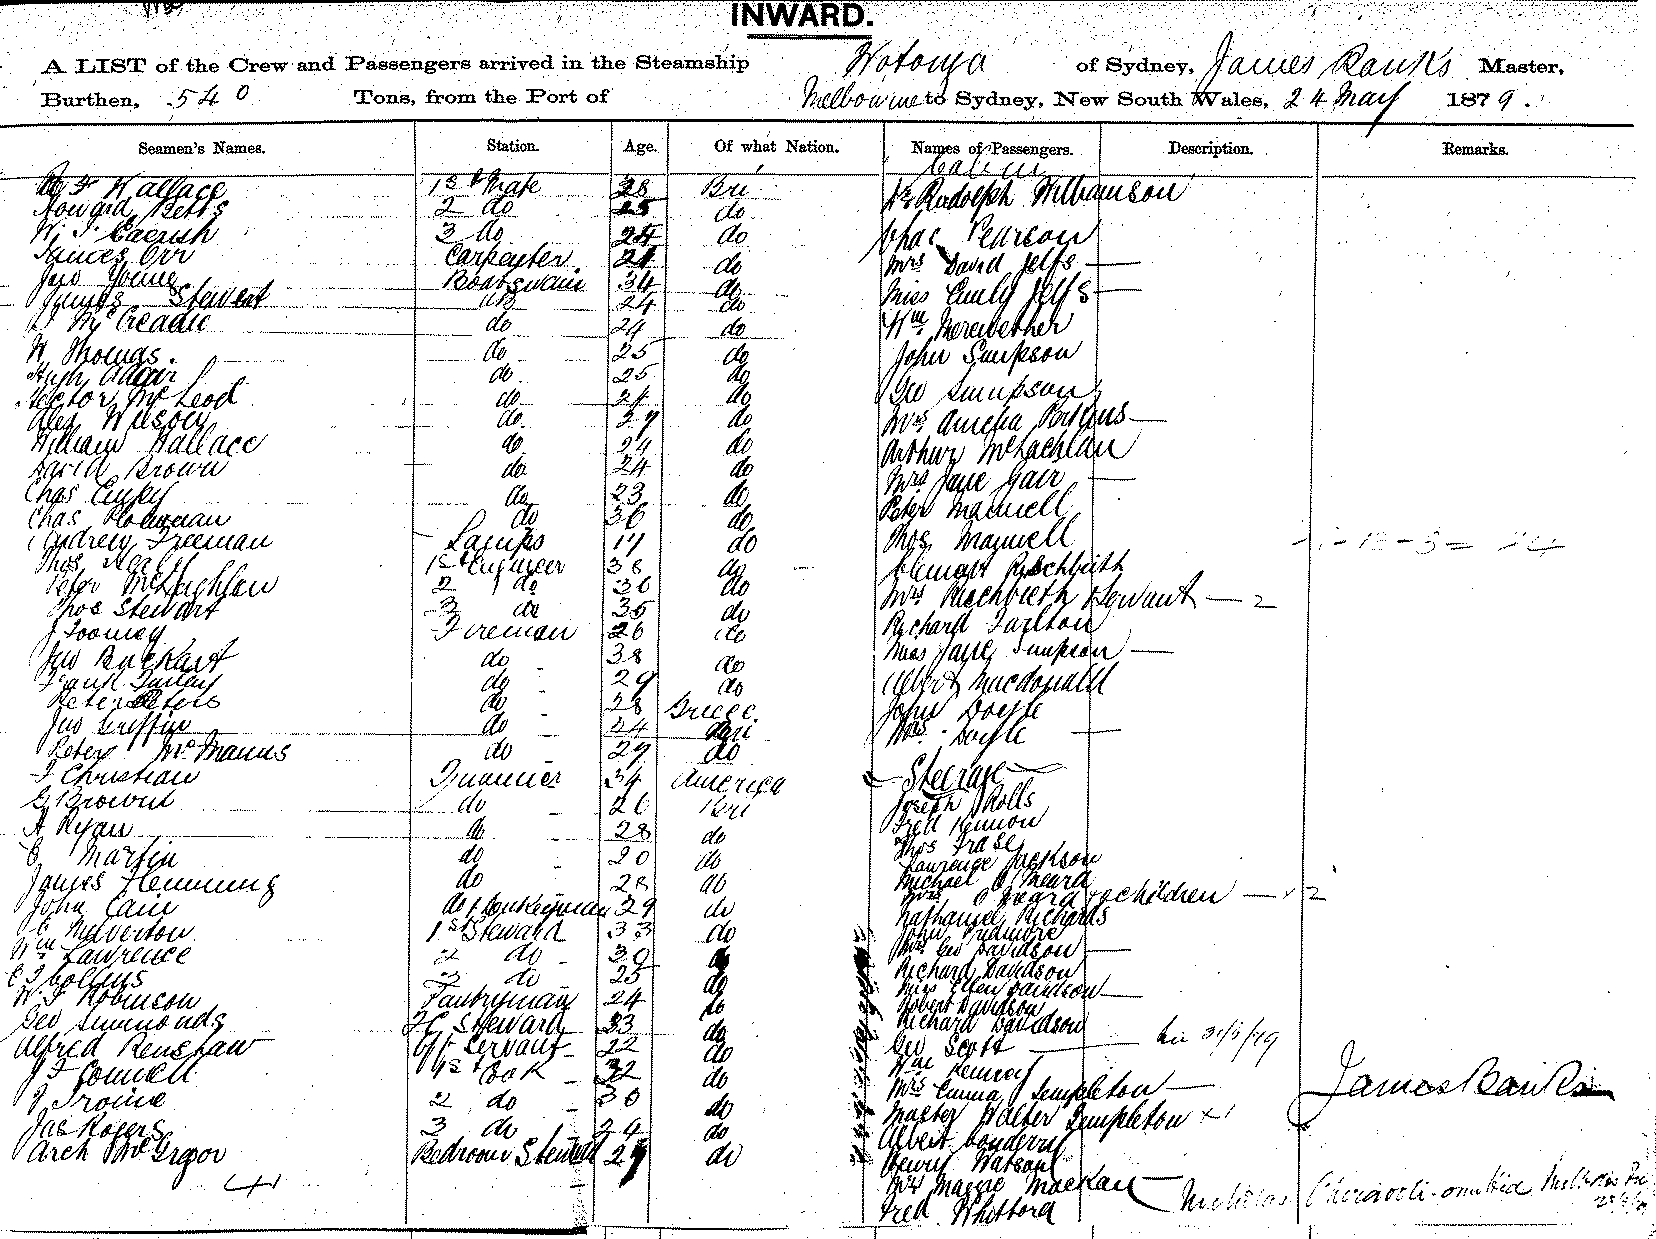 INWARD.
A LIST of the Crew and Passengers arrived in the Steamship Wotonga of Sydney, James Banks Master,
Burthen, 540 Tons, from the Port of Melbourne to Sydney, New South Wales, 24 May 1879.
Seamen's Names. Station. Age. Of what Nation. Names of Passengers. Description. Remarks.
Cabin
Wallace 1st Mate 28 Bri Mr Rudolph Williamson
Howard Betts 2 do 25 do
W. J. 3 do 24 do Chas Pearson
James Orr Carpenter 21 do Mrs David Jelfs —
Jno Young Boatswain 34 do Miss Emily Jelfs —
James Stewart AB 24 do
McCreadie do 24 do Wm Merewether
W Thomas. do 25 do John Simpson
Hugh Adair do 25 do Geo Simpson
Hector McLeod do 24 do
Alex Wilson do 29 do Mrs Amelia Perkins —
William Wallace do 24 do Arthur McLachlan
David Brown do 24 do Mrs Jane Gair —
Chas do 23 do Peter Maxwell
Chas do 36 do
Andrew Freeman Lamps 17 do Thos Maxwell
Thos 1st Engineer 38 do
Peter McLaughlan 2 do 36 do Mrs & Servant — 2
Thos Stewart 3 do 35 do Richard Tarlton
J Toomey Fireman 26 do Miss Jane Simpson —
Jno Burkart do 38 do
Frank do 29 do Albert Macdonald
Peter Peters do 28 Greece. John Doyle
Jno Griffin do 24 Bri Mrs Doyle —
Peter McManus do 29 do
F Christian Trimmer 34 America Steerage
G Brown do 26 Bri Joseph Rolls
A Ryan do 28 do Fred Kennon
Martin do 20 do Thos Frase
James Flemming do 28 do Lawrence Jackson
Michael O'Meara
Mrs O'Meara & children — 2
John Cain do & Donkeyman 29 do Nathaniel Richards
C Milverton 1st Steward 33 do John Pridmore
Wm Lawrence 2 do 39 do Mrs Geo Davidson —
E J Collins 3 do 25 do Richard Davidson
W. J Robinson Pantryman 24 do Miss Ellen Davidson —
Robert Davidson
Geo Simmonds F C Steward 33 do Richard Davidson
Alfred Renshaw Off Servant 22 do Geo Scott
J F Connell 1st Cook 32 do Wm Kenney
J Irvine 2 do 30 do Mrs Emma Templeton —
Jas Rogers 3 do 24 do Master Walter Templeton x 1
Arch McGregor Bedroom Steward 29 do Albert
Henry Watson
41
Mrs Maggie Mackay —
Fred Whitford
James Banks
Nicholas